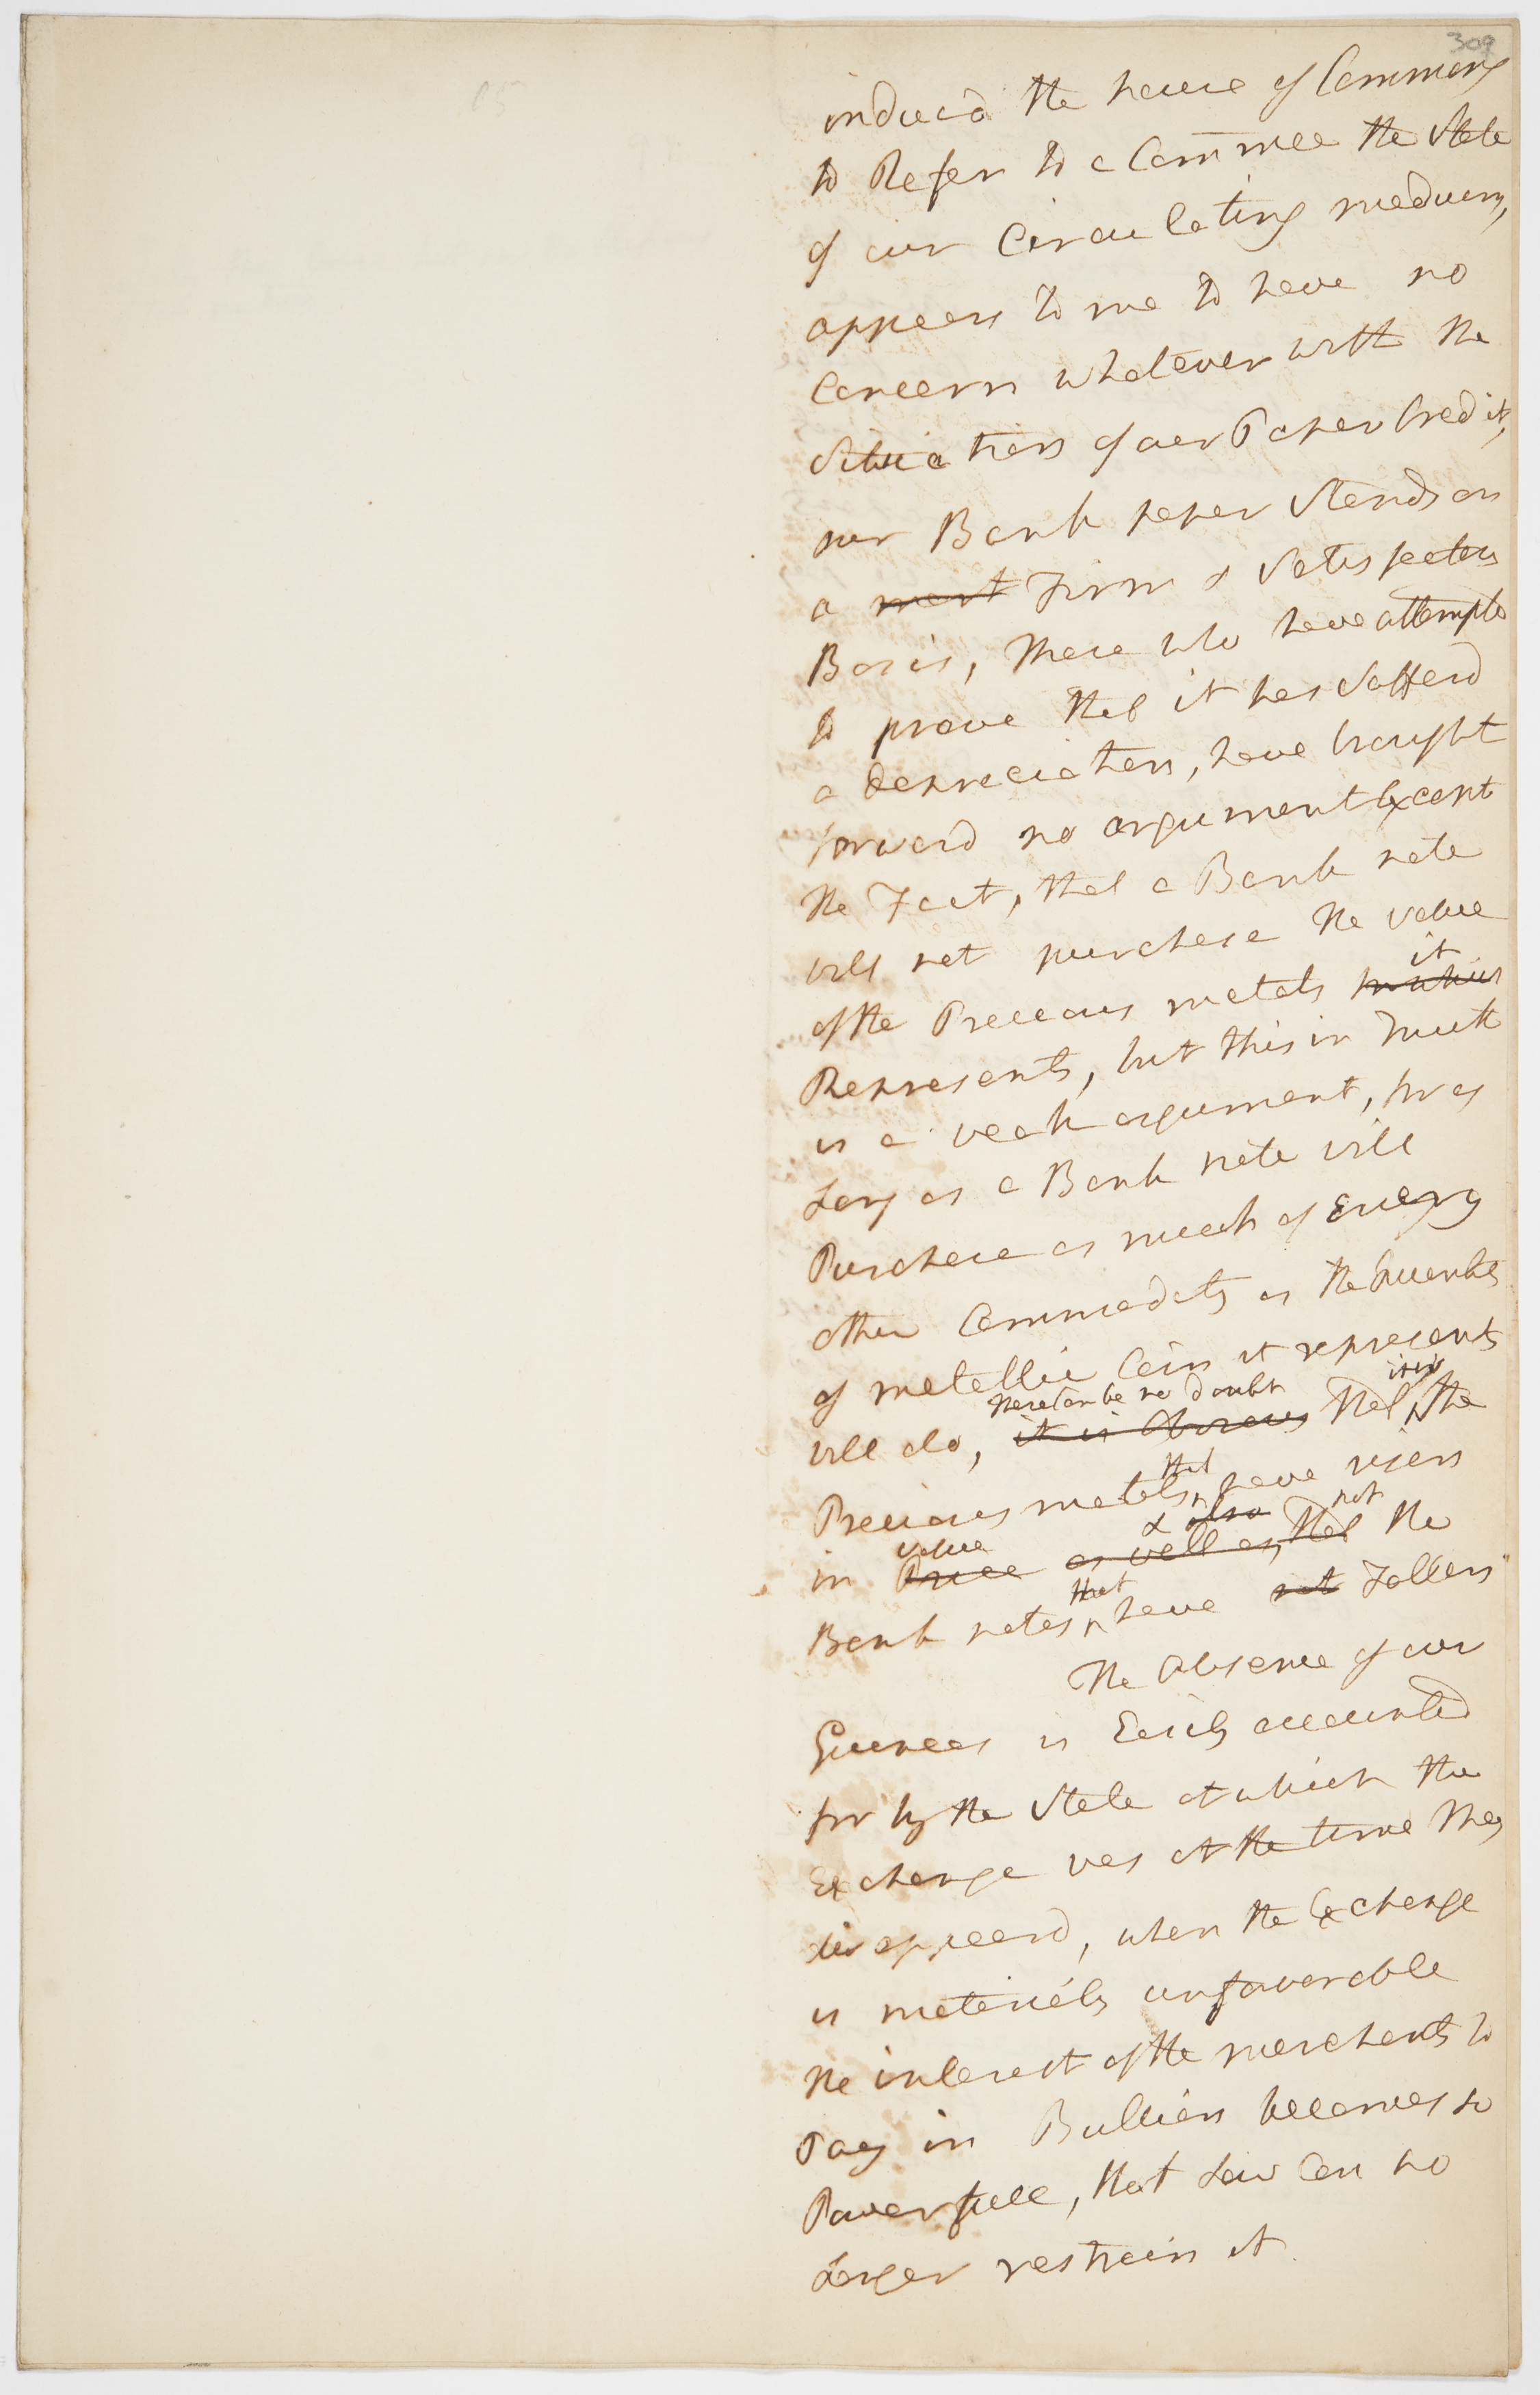 309
induced the house of Commons
to Refer to a Commee the State
of our Circulating medium,
appears to me to have no
Concern whatever with the
Situation of our Paper Credit,
our Bank paper Stands on
a most Firm & Satisfactory
Basis, those who have attempted
to prove that it has Sufferd
a depreciation, have brought
forward no argument Except
the Fact, that a Bank note
will not purchase the value
it
of the Precious metals
Represents, but this in Truth
is a weak argument, for as
Long as a Bank note will
Purchase as much of Every
other Commodity as the Quantity
of metallic Coin it represents
there Can be no doubt it is
will do, it is Obvious that the
that
Precious metals have risen
value & also not
in Price as well as, that the
that
Bank notes have not Fallen
The Absence of our
Guineas is Easily accounted
for by the State at which the
Exchange was at the time they
disappeard, when the Exchange
is materialy unfavorable
the interest of the merchants to
Pay in Bullion becomes so
Powerfull, that Law Can no
Longer restrain it.